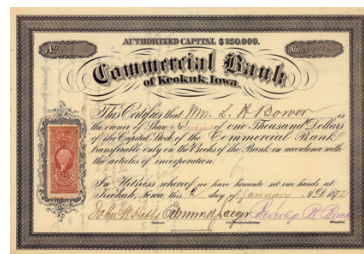 AUTHORIZED CAPITAL $250.000.
No
Commercial Bank
of Keokuk, Iowa.
This Certifies that Wm. L. R Bower is
the owner of Share No of one Thousand Dollars
of the Capital Stock of the Commercial Bank
transferable only on the Books of the Bank in accordance with
the articles of incorporation.
In Witness whereof we have hereunto set our hands at
Keokuk, Iowa, this day of January A.D. 1872
Edmund Jaeger